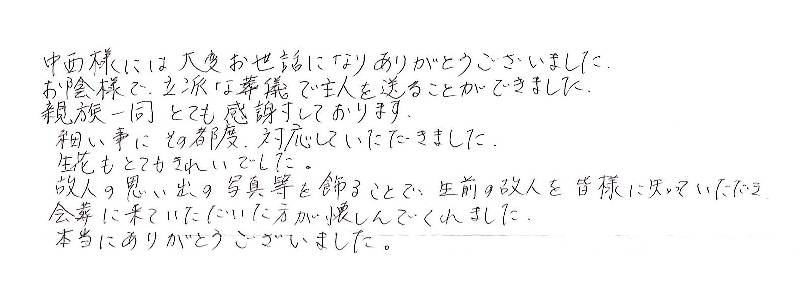 中西様には大変お世話になりありがとうございました.
お陰様で、立派な葬儀で主人を送ることができました.
親族一同とても感謝しております.
細い事にその都度、対応していただきました.
生花もとてもきれいでした。
故人の思い出の写真等を飾ることで、生前の故人を皆様に知っていただき
会葬に来ていただいた方が懐しんでくれました.
本当にありがとうございました。